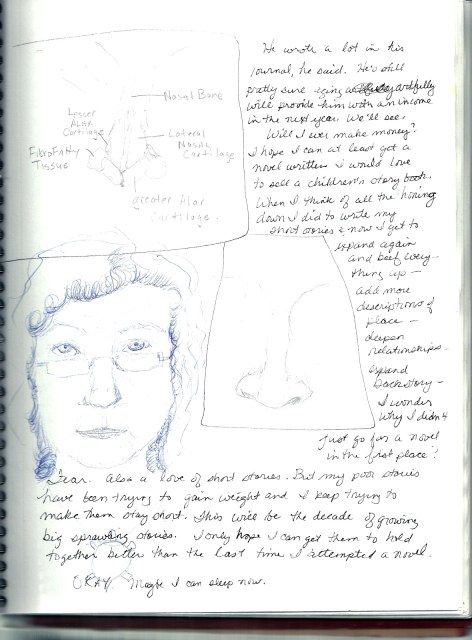 Nasal Bone
Lesser
Alar
Cartilage
Lateral
Nasal
Cartilage
FibroFatty
Tissue
Greater Alar
Cartilage.
He wrote a lot in his
journal, he said. He's still
pretty sure
will provide him with an income
in the next year. We'll see.
Will I ever make money?
I hope I can at least get a
novel written. I would love
to sell a children's story book.
When I think of all the honing
down I did to write my
short stories & now I get to
expand again
and beef every-
thing up –
add more
descriptions of
place –
deepen
relationships.
expand
backstory –
I wonder
why I didn't
just go for a novel
in the first place?
Fear. Also a love of short stories. But my poor stories
have been trying to gain weight and I keep trying to
make them stay short. This will be the decade of growing
big sprawling stories. I only hope I can get them to hold
together better than the last time I attempted a novel.
OKAY. Maybe I can sleep now.